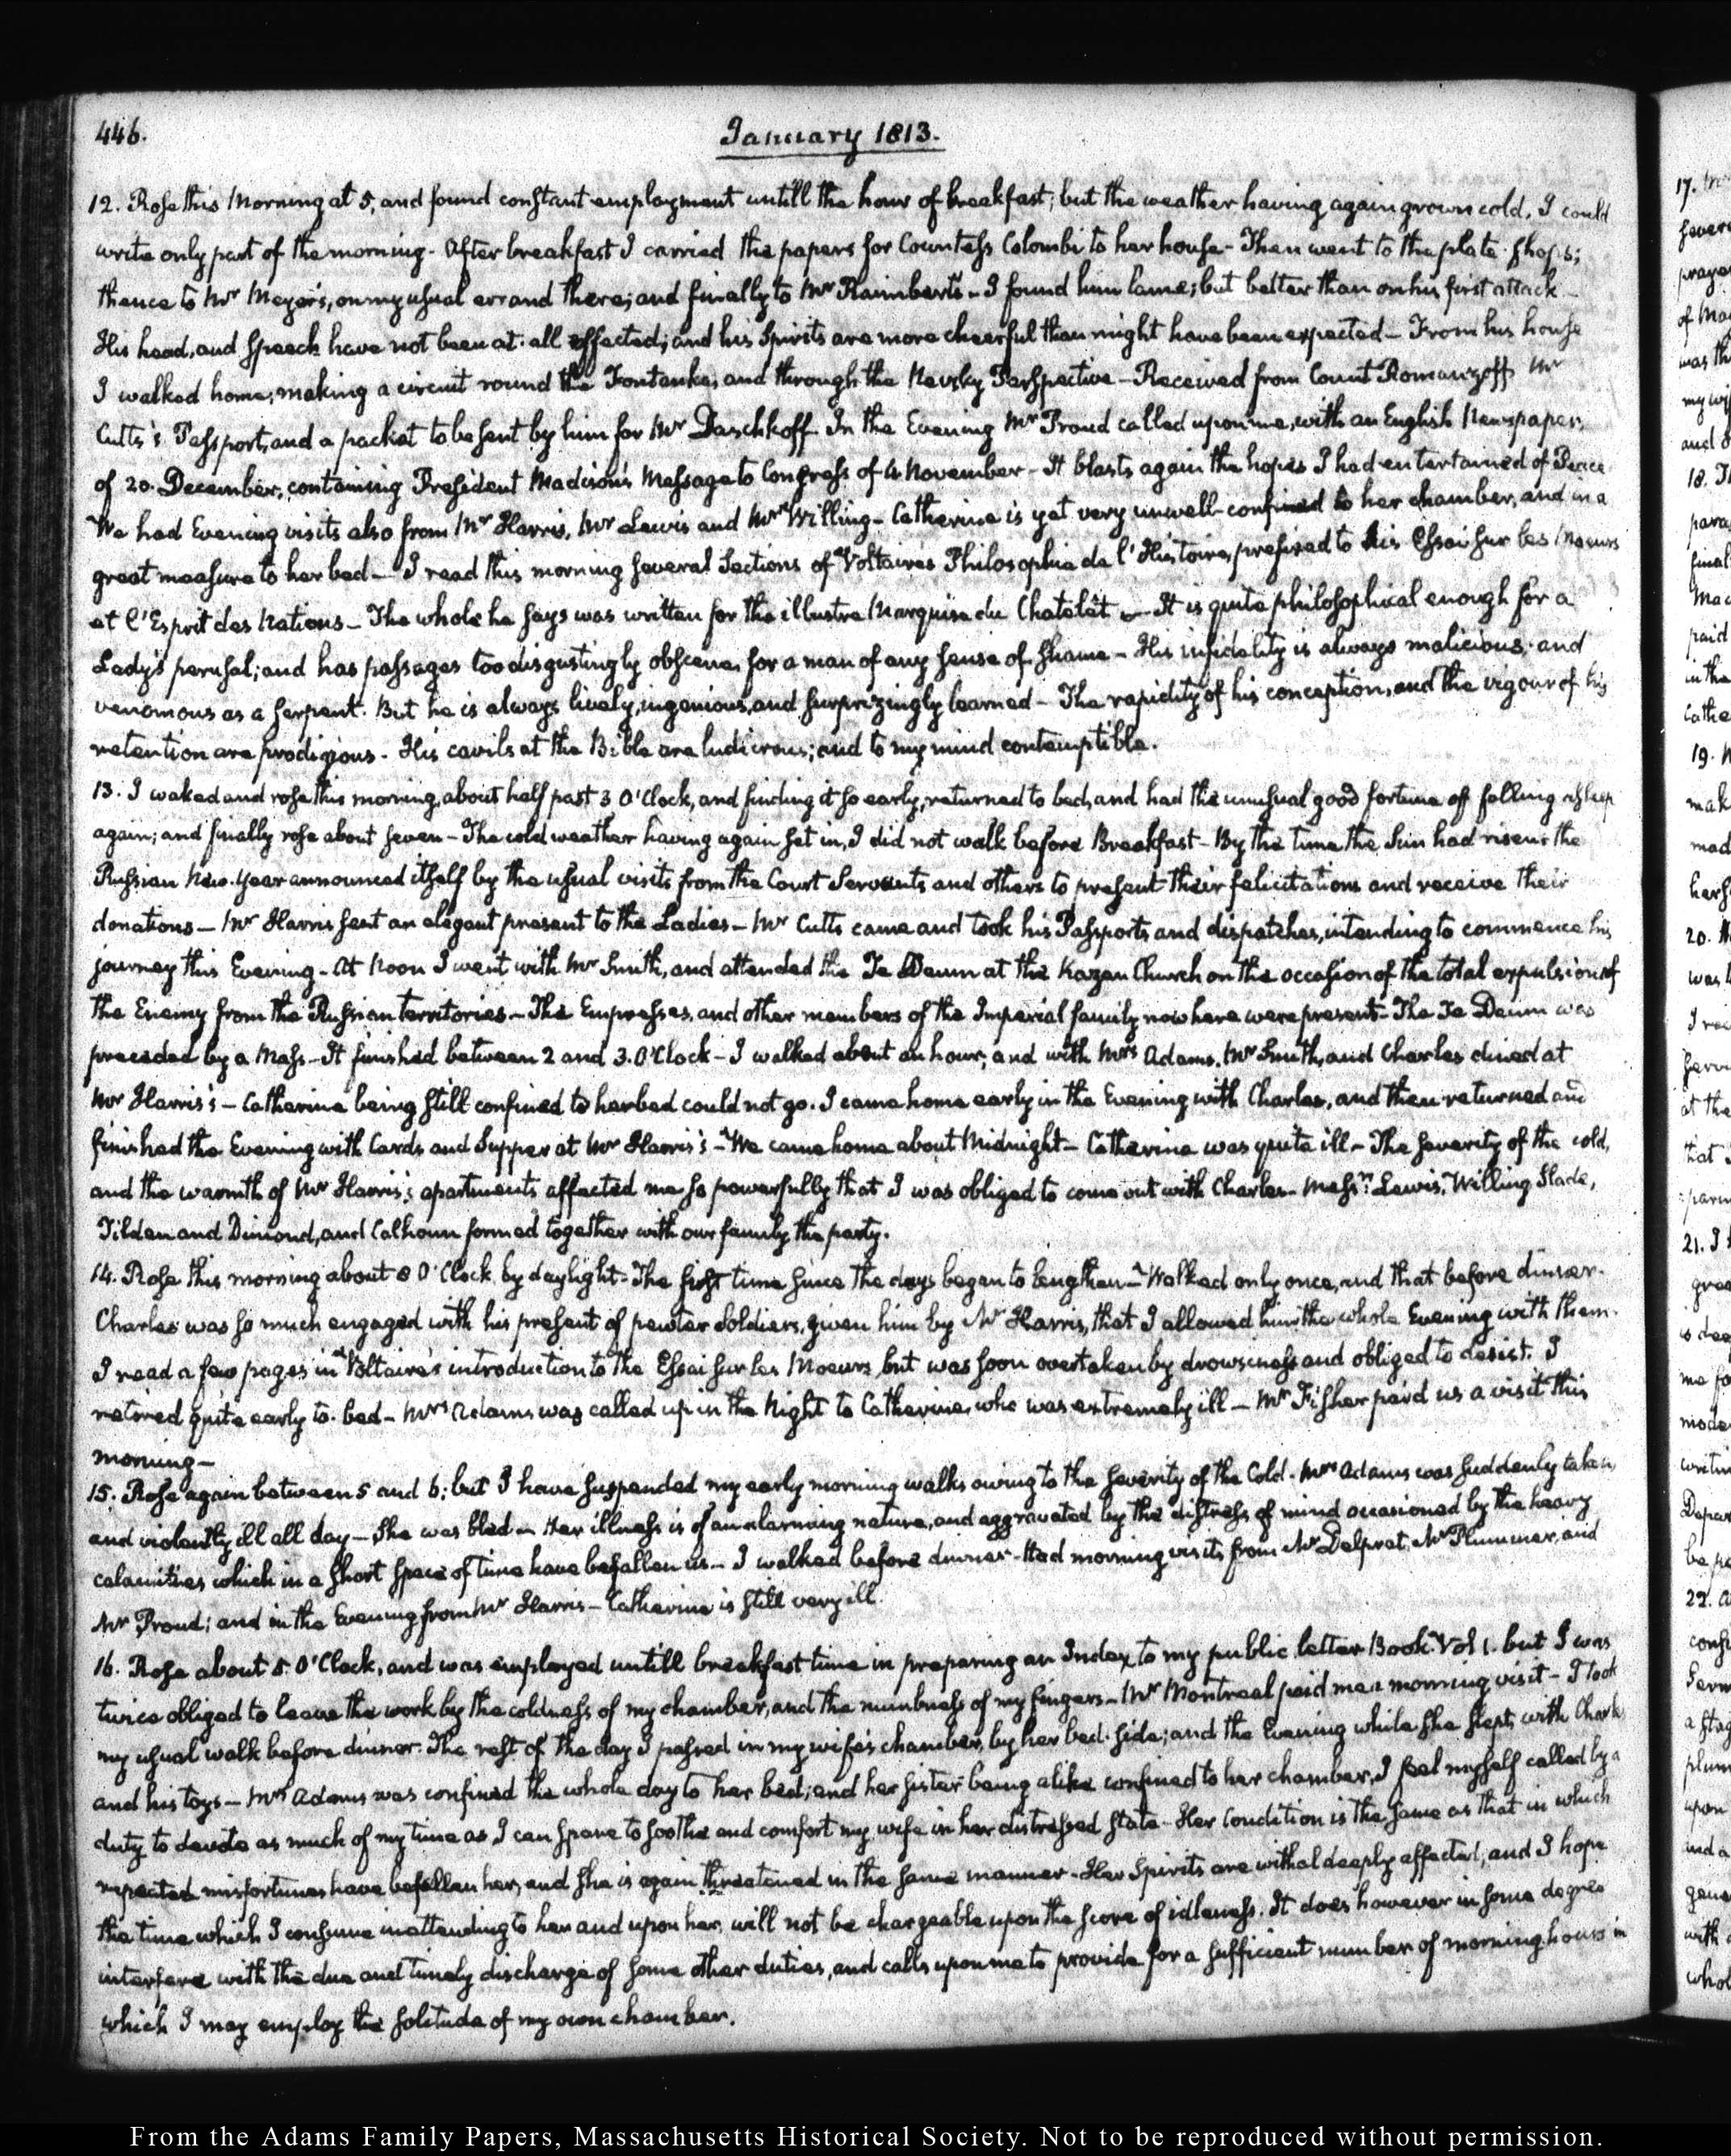 446.
January 1813.
12. Rose this Morning at 5, and found constant employment untill the hour of breakfast; but the weather having again grown cold, I could
write only part of the morning - After breakfast I carried the papers for Countess Colombi to her house - Then went to the plate-shops;
thence to Mr Meyer's, on my usual errand there; and finally to Mr Raimbert's - I found him lame; but better than on his first attack -
His head, and speech have not been at all affected; and his Spirits are more cheerful than might have been expected - From his house
I walked home, making a circuit round the Fontanka, and through the Nevsky Perspective - Received from Count Romanzoff Mr
Cutts's Passport, and a packet to be sent by him for Mr Daschkoff. In the Evening Mr Proud called upon me, with an English Newspaper,
of 20. December, containing President Madison's Message to Congress of 4 November - It blasts again the hopes I had entertained of Peace
We had Evening visits also from Mr Harris, Mr Lewis and Mr Willing - Catherine is yet very unwell confined to her chamber, and in a
great measure to her bed - I read this morning several Sections of Voltaire's Philosophie de l'Histoire, prefixed to his Essai sur les Moeurs
et l'Esprit des Nations - The whole he says was written for the illustre Marquise du Chatelêt - It is quite philosophical enough for a
Lady's perusal; and has passages too disgustingly obscene for a man of any sense of shame - His infidelity is always malicious; and
venomous as a serpent. But he is always lively, ingenious, and surprizingly learned - The rapidity of his conception, and the vigour of his
retention are prodigious - His cavils at the Bible are ludicrous; and to my mind contemptible.
13. I waked and rose this morning, about half past 3 O'Clock, and finding it so early, returned to bed, and had the unusual good fortune of falling asleep
again; and finally rose about seven - The cold weather having again set in, I did not walk before Breakfast - By the time the Sun had risen the
Russian New-Year announced itself by the usual visits from the Court Servants and others to present their felicitations and receive their
donations - Mr Harris sent an elegant present to the Ladies - Mr Cutts came and took his Passports and dispatches, intending to commence his
journey this Evening - At Noon I went with Mr Smith, and attended the Te Deum at the Kazan Church on the occasion of the total expulsion of
the Enemy from the Russian territories - The Empresses, and other members of the Imperial family now here were present - The Te Deum was
preceded by a Mass - It finished between 2 and 3. O'Clock - I walked about an hour; and with Mrs Adams, Mr Smith, and Charles dined at
Mr Harris's - Catherine being still confined to her bed could not go. I came home early in the Evening with Charles, and then returned and
finished the Evening with Cards and Supper at Mr Harris's - We came home about Midnight - Catherine was quite ill - The severity of the cold,
and the warmth of Mr Harris's apartments affected me so powerfully that I was obliged to come out with Charles - Messrs Lewis, Willing Slade,
Tilden and Dimond, and Calhoun formed together with our family the party.
14. Rose this morning about 8 O'Clock, by daylight - The first time since the days began to lengthen - Walked only once, and that before dinner.
Charles was so much engaged with his present of pewter Soldiers, given him by Mr Harris, that I allowed him the whole Evening with them.
I read a few pages in Voltaire's introduction to the Essai sur les Moeurs but was soon overtaken by drowsiness and obliged to desist. I
retired quite early to bed - Mrs Adams was called up in the Night to Catherine, who was extremely ill - Mr Fisher paid us a visit this
morning -
15. Rose again between 5 and 6; but I have suspended my early morning walks owing to the severity of the Cold. Mrs Adams was suddenly taken,
and violently ill all day - She was bled - Her illness is of an alarming nature, and aggravated by the distress of mind occasioned by the heavy
calamities which in a short space of time have befallen us - I walked before dinner - Had morning visits from Mr Delprat, Mr Plummer, and
Mr Proud; and in the Evening from Mr Harris - Catherine is still very ill.
16. Rose about 5. O'Clock, and was employed untill breakfast time in preparing an Index to my public letter Book Vol 1. but I was
twice obliged to leave the work by the coldness of my chamber, and the numbness of my fingers - Mr Montreal paid me a morning visit - I took
my usual walk before dinner. The rest of the day I passed in my wife's chamber, by her bed-side; and the Evening while she slept, with Charles
and his toys - Mrs Adams was confined the whole day to her bed; and her sister being alike confined to her chamber, I feel myself called by a
duty to devote as much of my time as I can spare to soothe and comfort my wife in her distressed state - Her Condition is the same as that in which
repeated misfortunes have befallen her, and she is again threatened in the same manner - Her Spirits are withal deeply affected, and I hope
the time which I consume in attending to her and upon her, will not be chargeable upon the score of idleness. It does however in some degree
interfere with the due and timely discharge of some other duties, and calls upon me to provide for a sufficient number of morning hours in
which I may employ the solitude of my own chamber.
From the Adams Family Papers, Massachusetts Historical Society. Not to be reproduced without permission.